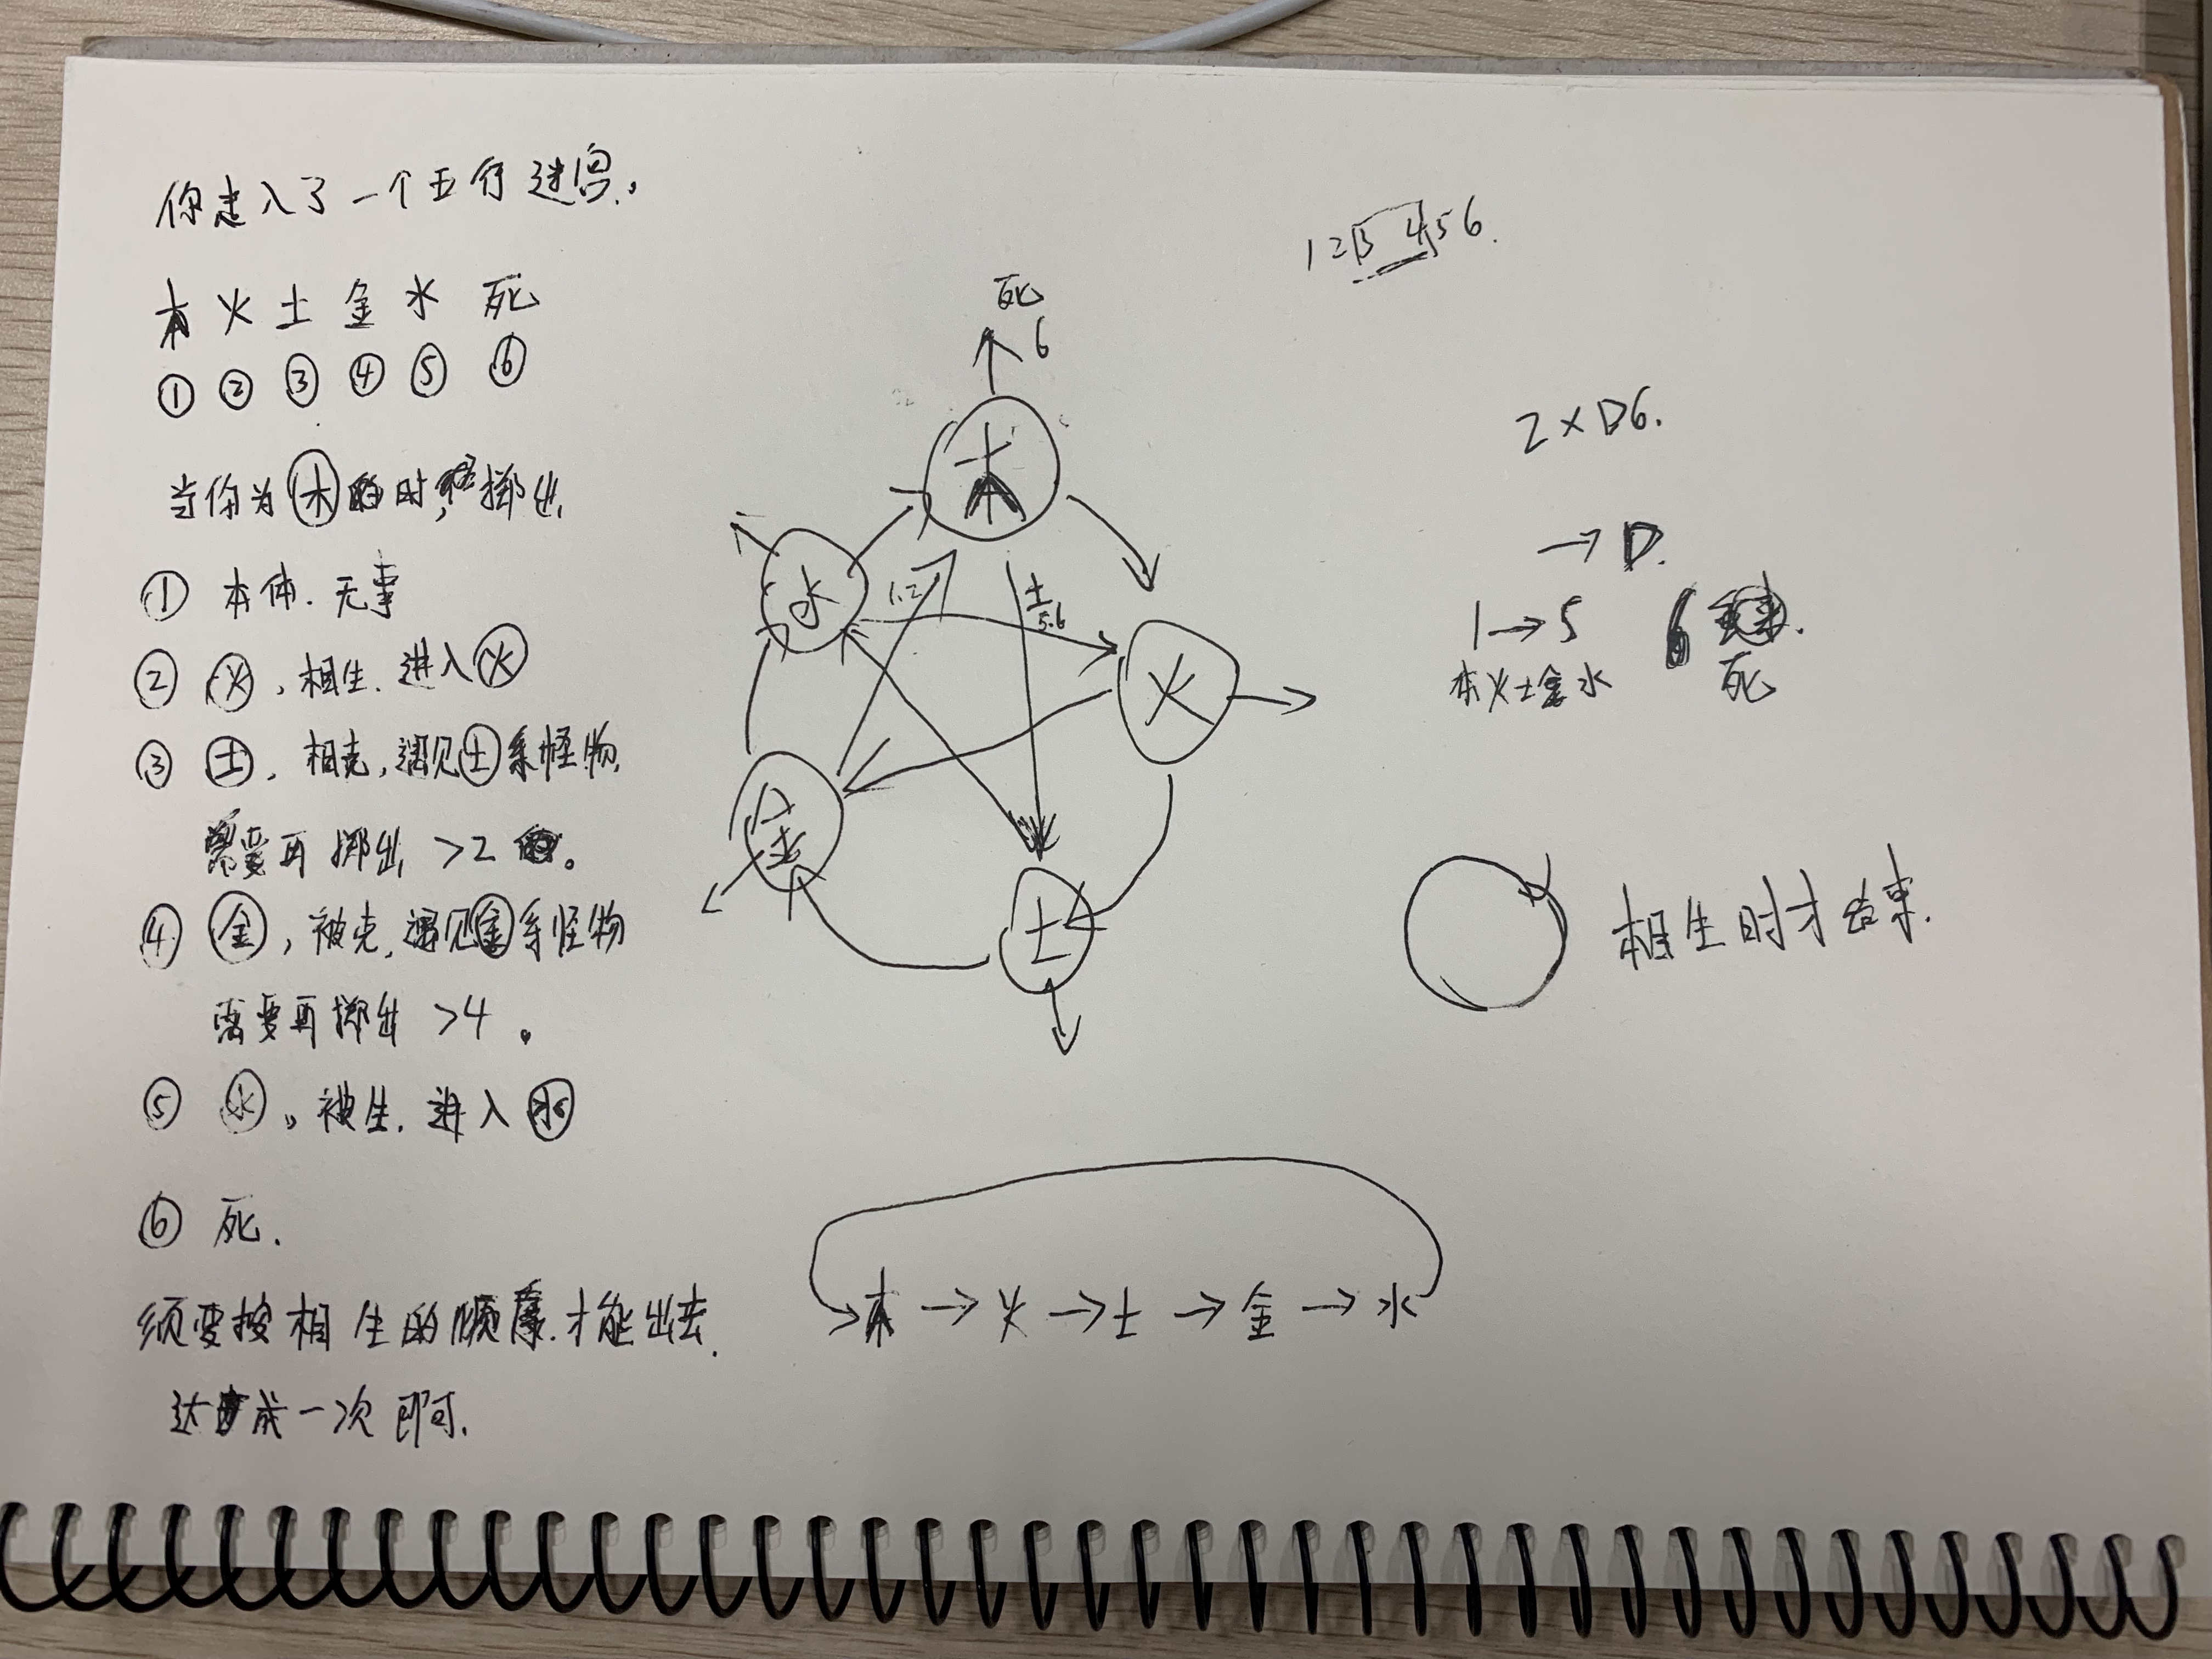 你走入了一个五行迷宫.
木 火 土 金 水 死
① ② ③ ④ ⑤ ⑥
当你为木时,掷出
① 本体.无事
② 火,相生.进入火
③ 土,相克,遇见土系怪物
需要再掷出 >2 。
④ 金,被克,遇见金系怪物
需要再掷出 >4 。
⑤ 水。被生.进入水
⑥ 死.
须要按相生的顺序.才能出去.
达成一次即可.
死
6
木
水
火
金
土
1.2
土
5.6
木 → 火 → 土 → 金 → 水
1 2 3 4 5 6.
2 × D6.
→ D.
1 → 5 6
木火土金水 死
相生时才结束.